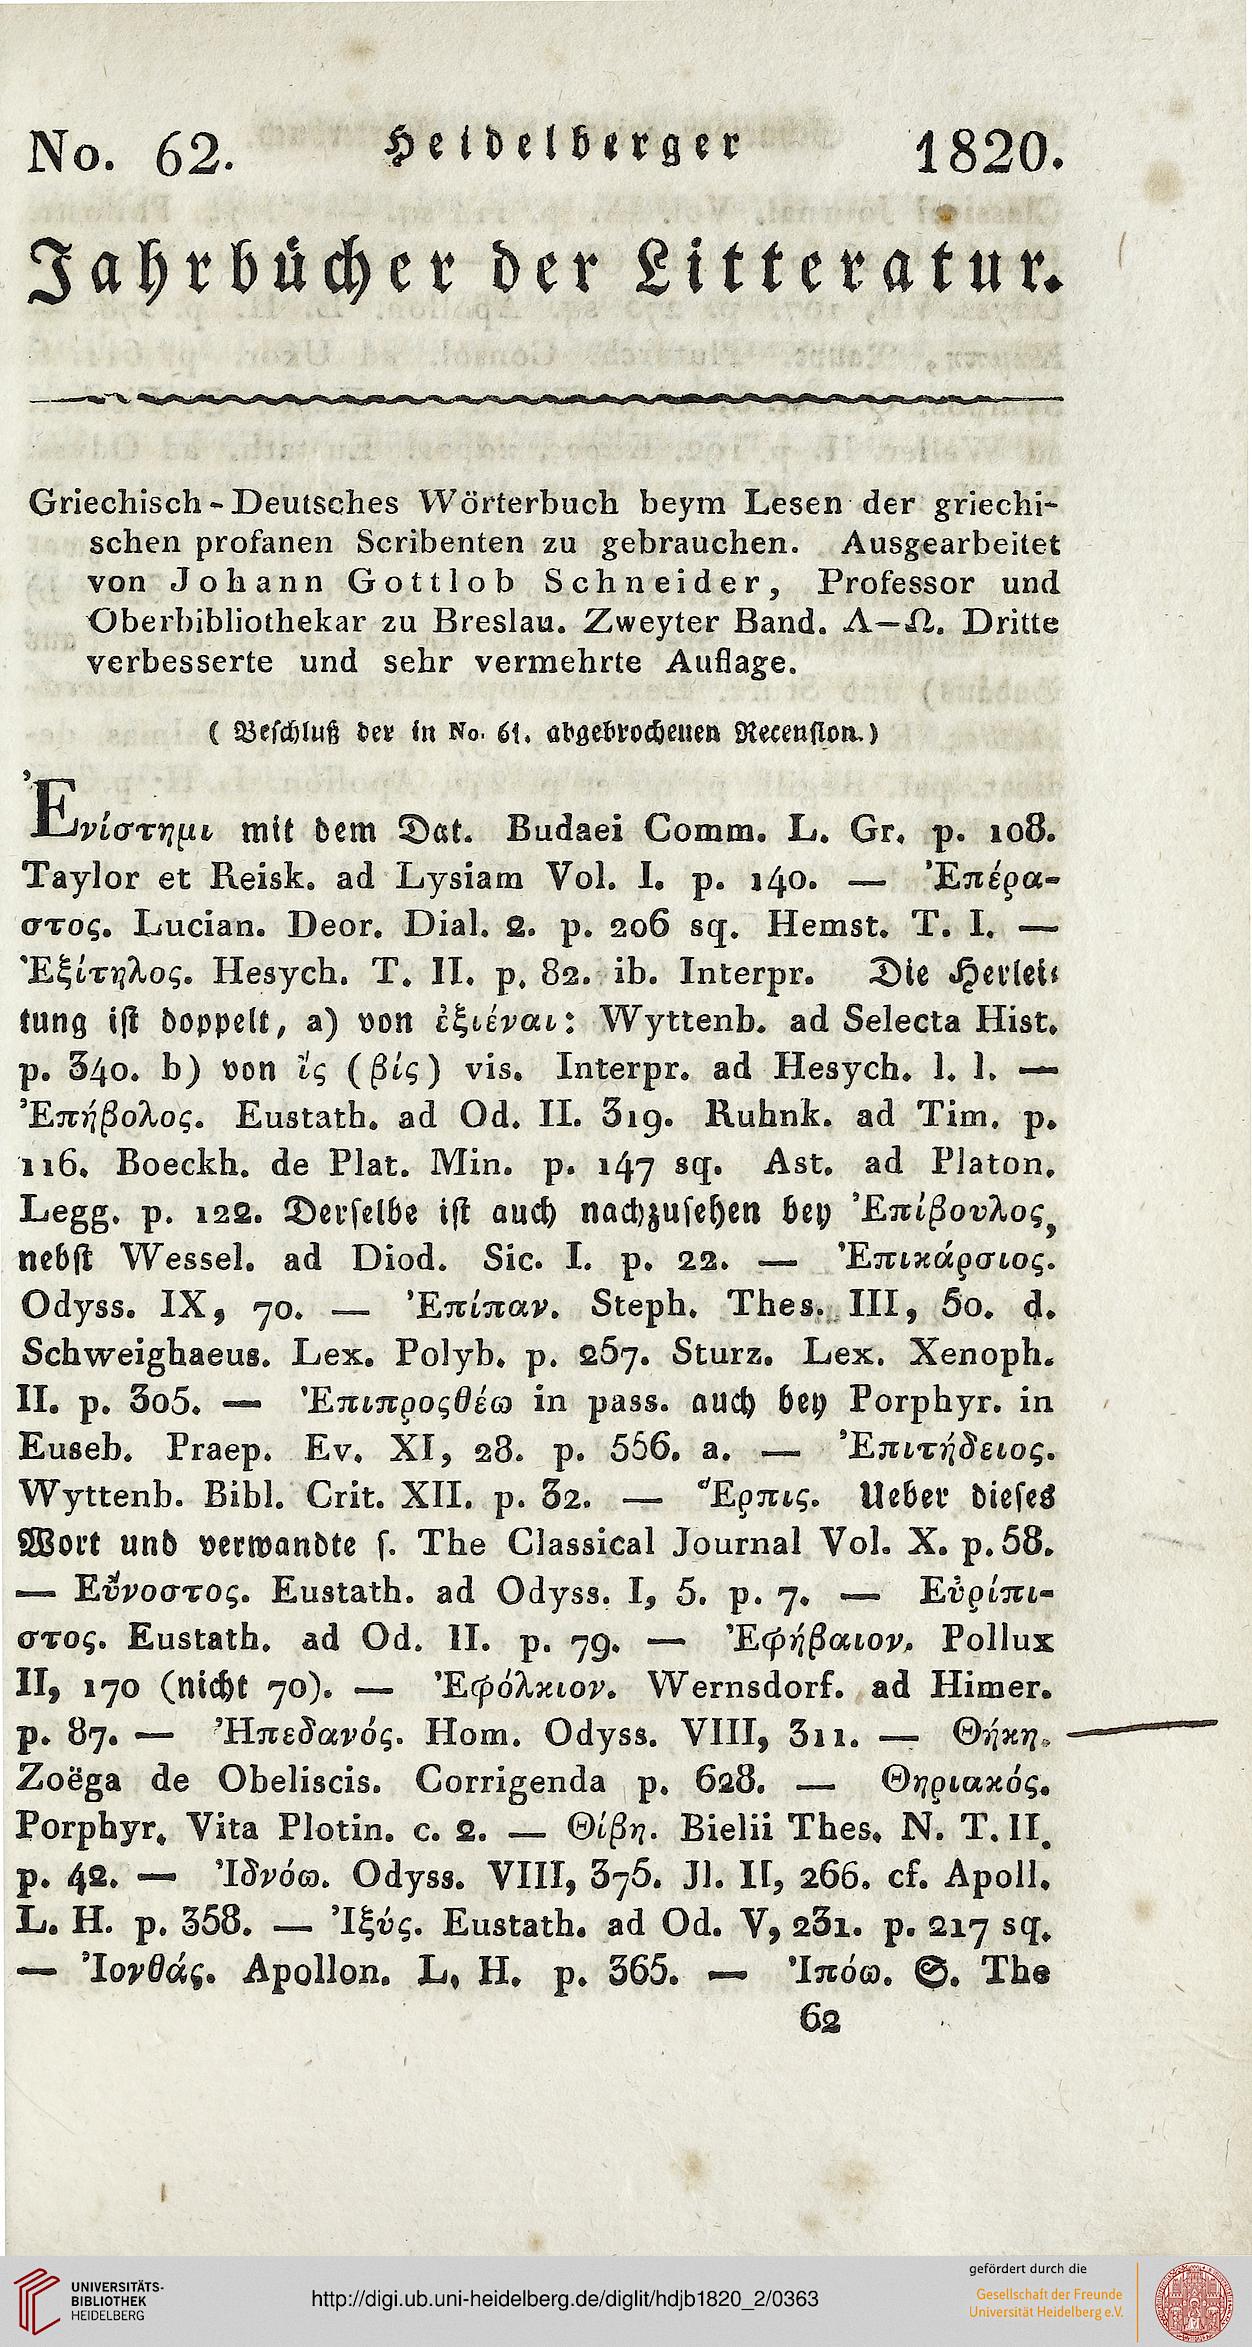 No. 62. Heidelberger 1820.
Jahrbücher der Litteratur.
Griechisch-Deutsches Wörterbuch beym Lesen der griechi-
schen profanen Scribenten zu gebrauchen. Ausgearbeitet
von Johann Gottlob Schneider, Professor und
Oberbibliothekar zu Breslau. Zweyter Band. Λ—Ω. Dritte
verbesserte und sehr vermehrte Auflage.
(Beschluß der in No. 61. abgebrochenen Recension.)
Ἐνίστημι mit dem Dat. Budaei Comm. L. Gr. p. 108.
Taylor et Reisk. ad Lysiam Vol. I. p. 140. — Ἐπέρα-
στος. Lucian. Deor. Dial. 2. p. 206 sq. Hemst. T. I. —
Ἐξίτηλος. Hesych. T. II. p. 82. ib. Interpr. Die Herlei-
tung ist doppelt, a) von ἐξιέναι: Wyttenb. ad Selecta Hist.
p. 340. b) von ἴς (βίς) vis. Interpr. ad Hesych. l. l. —
Ἐπήβολος. Eustath. ad Od. II. 319. Ruhnk. ad Tim. p.
116. Boeckh. de Plat. Min. p. 147 sq. Ast. ad Platon.
Legg. p. 122. Derselbe ist auch nachzusehen bey Ἐπίβουλος,
nebst Wessel. ad Diod. Sic. I. p. 22. — Ἐπικάρσιος.
Odyss. IX, 70. — Ἐπίπαν. Steph. Thes. III, 50. d.
Schweighaeus. Lex. Polyb. p. 257. Sturz. Lex. Xenoph.
II. p. 305. — Ἐπιπροςθέω in pass. auch bey Porphyr. in
Euseb. Praep. Ev. XI, 28. p. 556. a. — Ἐπιτήδειος.
Wyttenb. Bibl. Crit. XII. p. 32. — Ἕρπις. Ueber dieses
Wort und verwandte s. The Classical Journal Vol. X. p. 58.
— Εὔνοστος. Eustath. ad Odyss. I, 5. p. 7. — Εὐρίπι-
στος. Eustath. ad Od. II. p. 79. — Ἐφήβαιον. Pollux
II, 170 (nicht 70). — Ἐφόλκιον. Wernsdorf. ad Himer.
p. 87. — Ἠπεδανός. Hom. Odyss. VIII, 311. — Θήκη.
Zoëga de Obeliscis. Corrigenda p. 628. — Θηριακός.
Porphyr. Vita Plotin. c. 2. — Θίβη. Bielii Thes. N. T. II.
p. 42. — Ἰδνόω. Odyss. VIII, 375. Jl. II, 266. cf. Apoll.
L. H. p. 358. — Ἰξύς. Eustath. ad Od. V, 231. p. 217 sq.
— Ἰονθάς. Apollon. L. H. p. 365. — Ἰπόω. S. The
62
UNIVERSITÄTS-
BIBLIOTHEK
HEIDELBERG
http://digi.ub.uni-heidelberg.de/diglit/hdjb1820_2/0363
gefördert durch die
Gesellschaft der Freunde
Universität Heidelberg e.V.